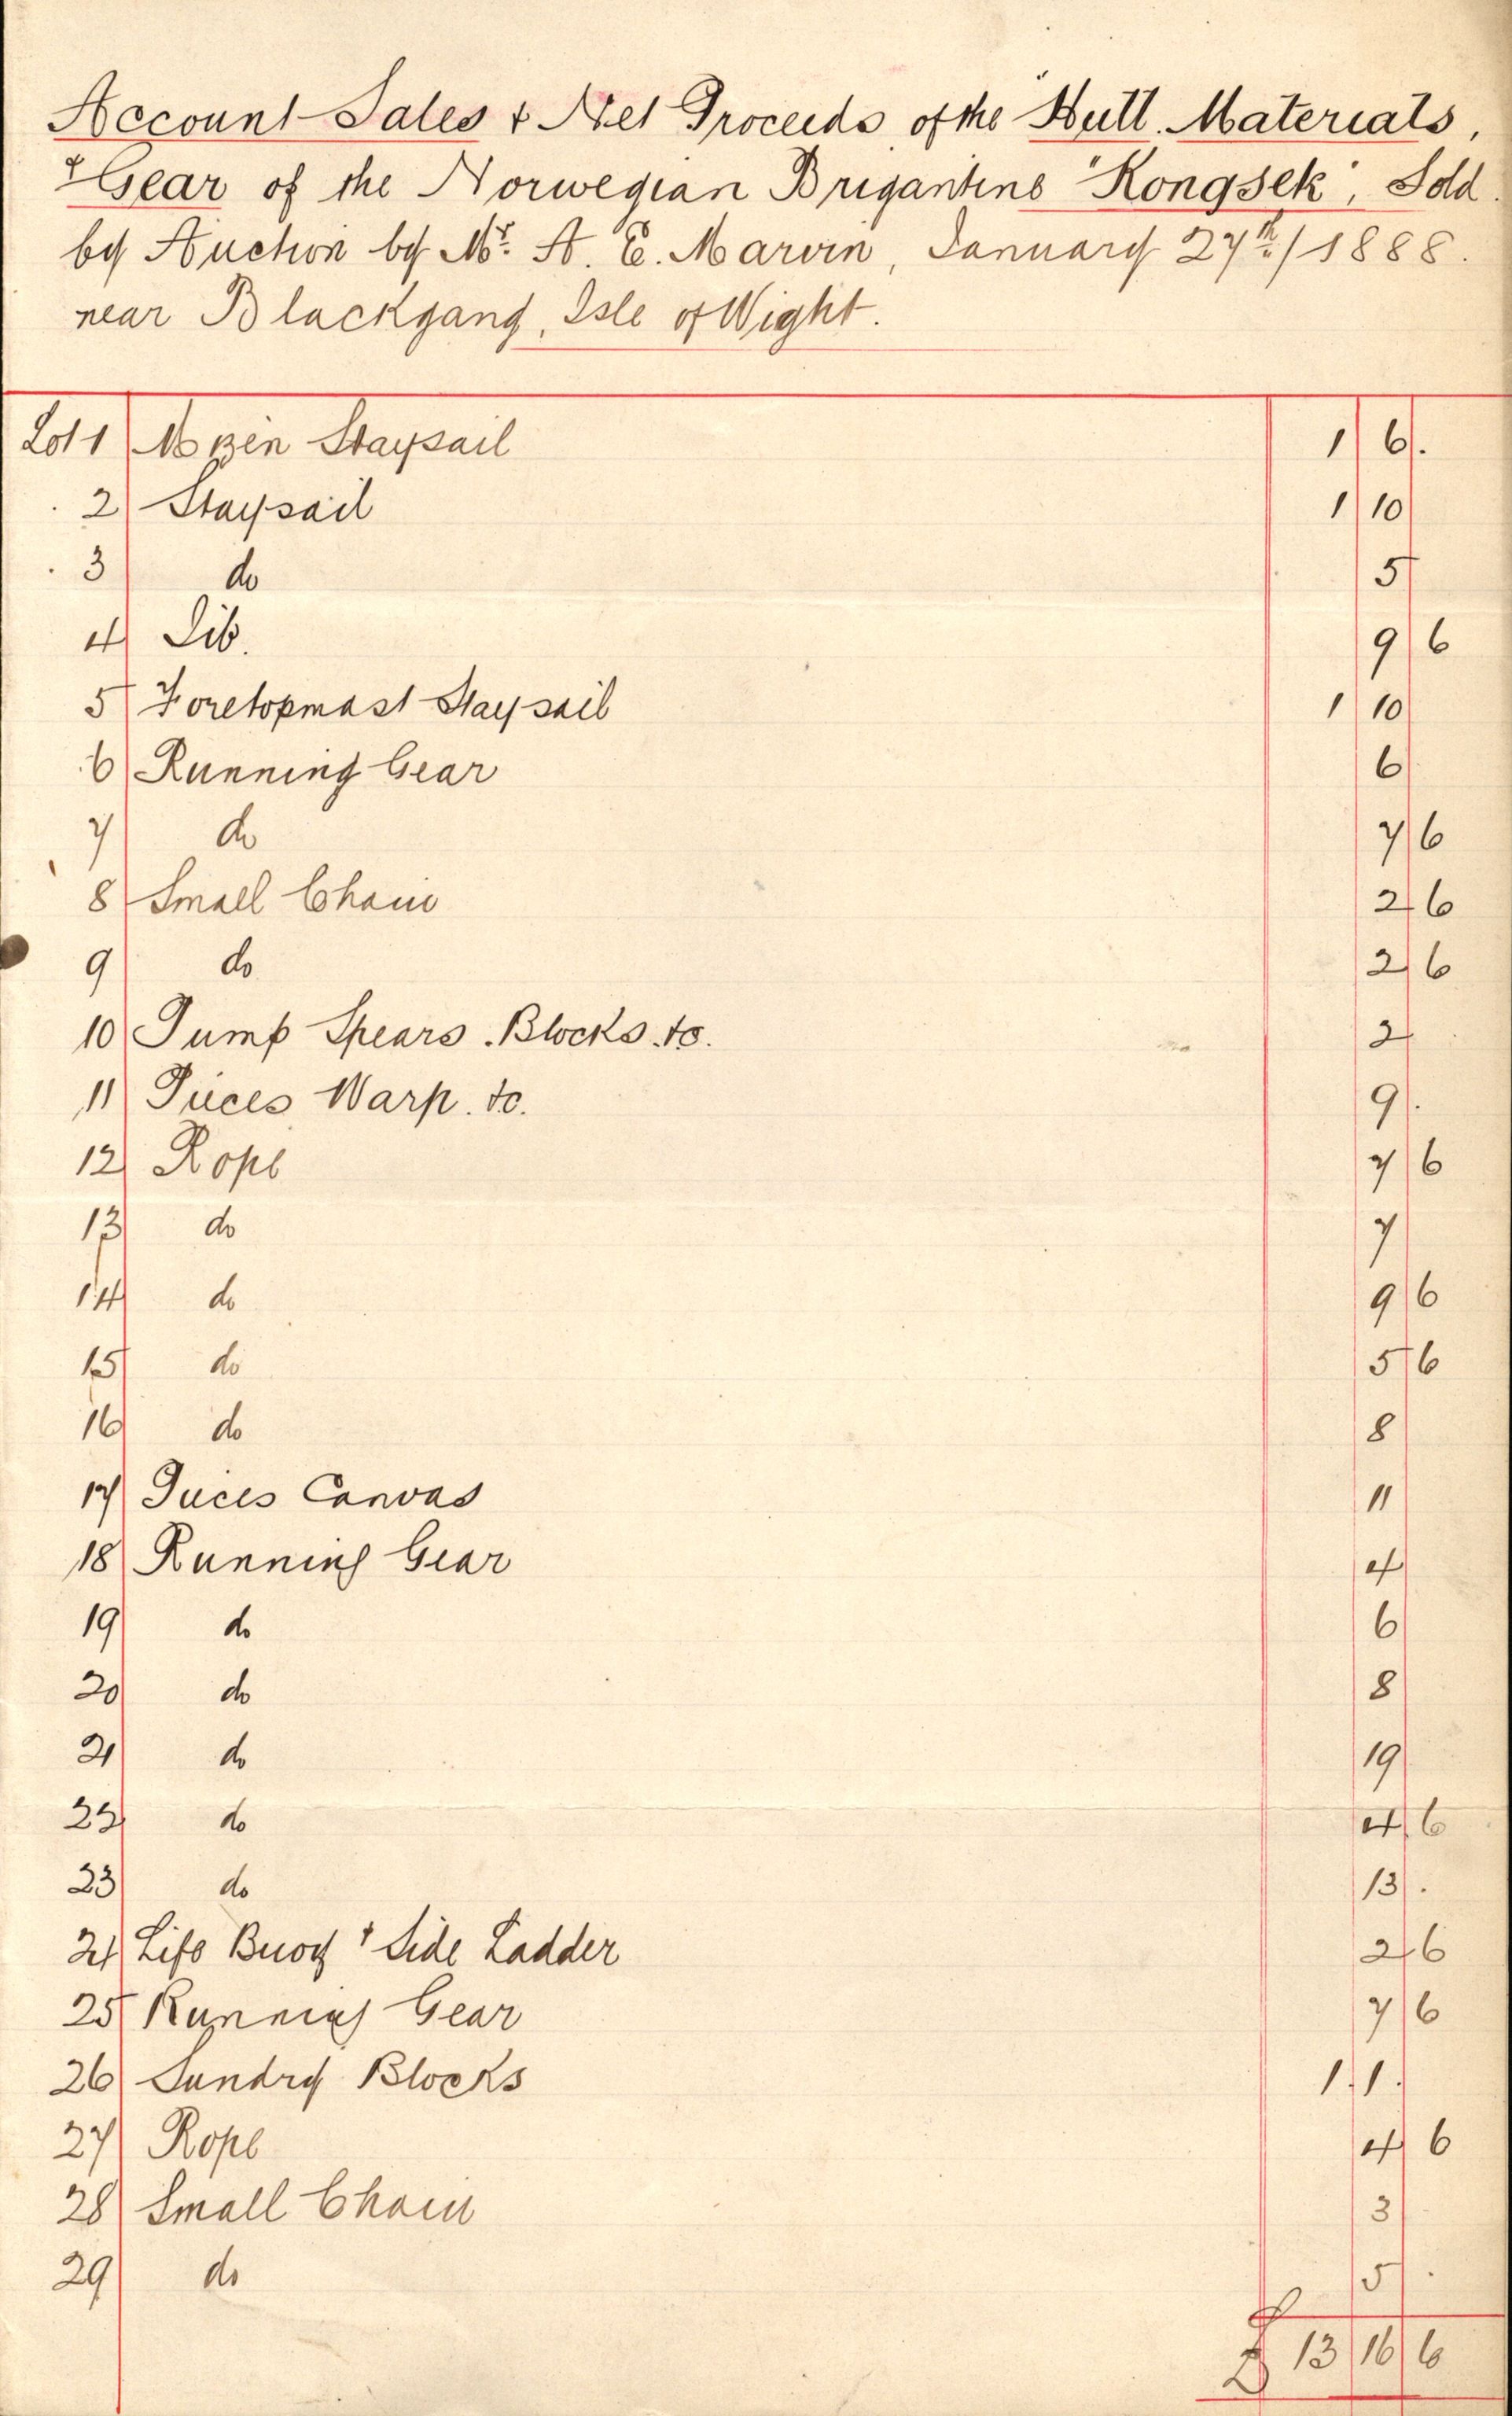 Account Sales & Net Proceeds of the Hull. Materials,
& Gear of the Norwegian Brigantine "Kongsek", Sold
by Auction by Mr. A. E. Marvin, January 27th/1888.
near Blackgang, Isle of Wight.
Lot 1 Mizen Staysail 1 6
2 Staysail 1 10
3 do 5
4 Jib. 9 6
5 Foretopmast Staysail 1 10
6 Running Gear 6
7 do 7 6
8 Small Chain 2 6
9 do 2 6
10 Pump Spears. Blocks. &c. 2
11 Pieces Warp. &c. 9
12 Rope 7 6
13 do 7
14 do 9 6
15 do 5 6
16 do 8
17 Pieces Canvas 11
18 Running Gear 4
19 do 6
20 do 8
21 do 19
22 do 4 6
23 do 13
24 Life Buoy & Side Ladder 2 6
25 Running Gear 7 6
26 Sundry Blocks 1. 1.
27 Rope 4 6
28 Small Chain 3
29 do 5
£ 13 16 6